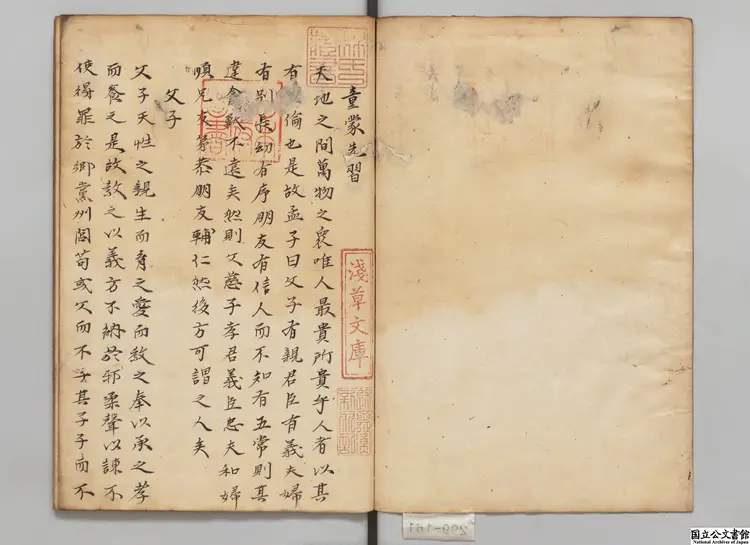 童蒙先習
天地之間萬物之衆唯人最貴所貴乎人者以其
有 倫也是故孟子曰父子有親君臣有義夫婦
有別長幼有序朋友有信人而不知有五常則其
違禽獸不遠矣然則父慈子孝君義臣忠夫和婦
順兄友弟恭朋友輔仁然後方可謂之人矣
父子
父子天性之親生而育之愛而教之奉以承之孝
而養之是故教之以義方不納於邪柔聲以諫不
使得罪於鄉黨州閭苟或父而不子其子子而不
淺草文庫
299-161
国立公文書館
National Archives of Japan